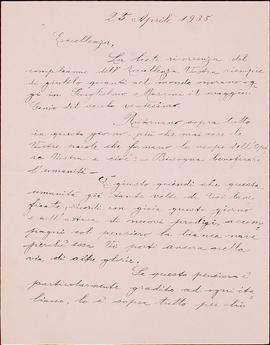 25 Aprile 1935.
Eccellenza,
La lieta ricorrenza del
compleanno dell'Eccellenza Vostra riempie
di giubilo quanti nel mondo onorano og-
gi in Guglielmo Marconi il maggior
Genio del secolo ventesimo.
Risuonano sopra tutto
in questo giorno, più che mai care le
Vostre parole che formano lo scopo dell'Ope-
ra Vostra e cioè: - Bisogna beneficare
l'umanità -
È giusto quindi che questa
umanità, già tante volte da Voi bene-
ficata, ricordi con gioia questo giorno
e nell'attesa di nuovi prodigi, accom-
pagni col pensiero la bianca nave
perchè essa Vi porti ancora nella
via di altre glorie.
Se questo pensiero è
particolarmente gradito ad ogni ita-
liano, lo è sopra tutto per chi